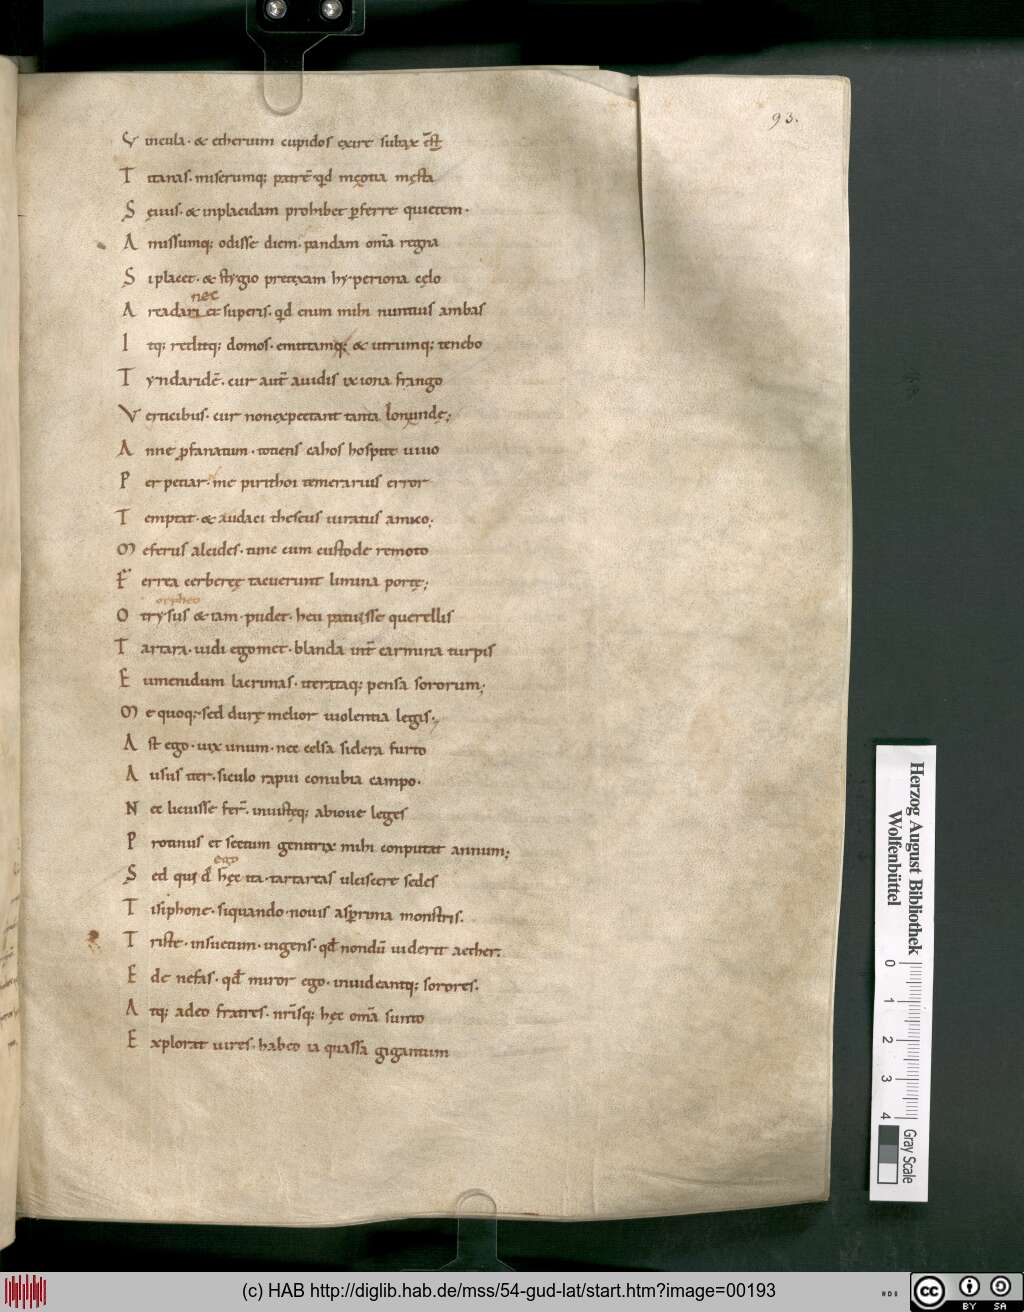 93.
Vincula · & etherium cupidos exire subaxē. est
Titanas · miserumq; patrē · qd męotia męsta
Sęuus · & inplacidam prohibet pferre quietem ·
Amissumq; odisse diem · pandam om̄a regna
Si placet · & stygio pretexam hyperiona cęlo
nec
Arcadas et superis · qd enim mihi nuntius ambas
Itq; reditq; domos · emittamq; & utrumq; tenebo
Tyndaridē · cur aut̄ auidis ixiona frango
Verticibus · cur non expectant tanta lon unde;
Anne pfanatum · totiens cahos hospite uiuo
Perpetiar · me pirithoi temerarius error
Temptat · & audaci theseus iuratus amico;
Me ferus alcides · tunc cum custode remoto
Ferrea cerberee tacuerunt limina portę;
orpheo
Otrysus & iam · pudet · heu patuisse querellis
Tartara · uidi egomet · blanda int̄ carmina turpis
Eumenidum lacrimas · iterataq; pensa sororum;
Me quoq; sed durę melior uiolentia legis;
Ast ego · uix unum · nec celsa sidera furto
Ausus iter · siculo rapui conubia campo ·
Nec licuisse fer̄ · iniustęq; abioue leges
Protinus et sectum genitrix mihi conputat annum;
ego
Sed quid hęc ita · tartareas ulciscere sedes
Tisiphone · siquando · nouis asperrima monstris.
Triste · insuetum · ingens · qd nondū uiderit aether.
Ede nefas · qd miror ego · inuideantq; sorores.
Atq; adeo fratres · nr̄isq; hęc om̄a sunto
Explorat uires · habeo ia quassa gigantum
Herzog August Bibliothek
Wolfenbüttel
0 1 2 3 4
Gray Scale
(c) HAB http://diglib.hab.de/mss/54-gud-lat/start.htm?image=00193
cc BY SA